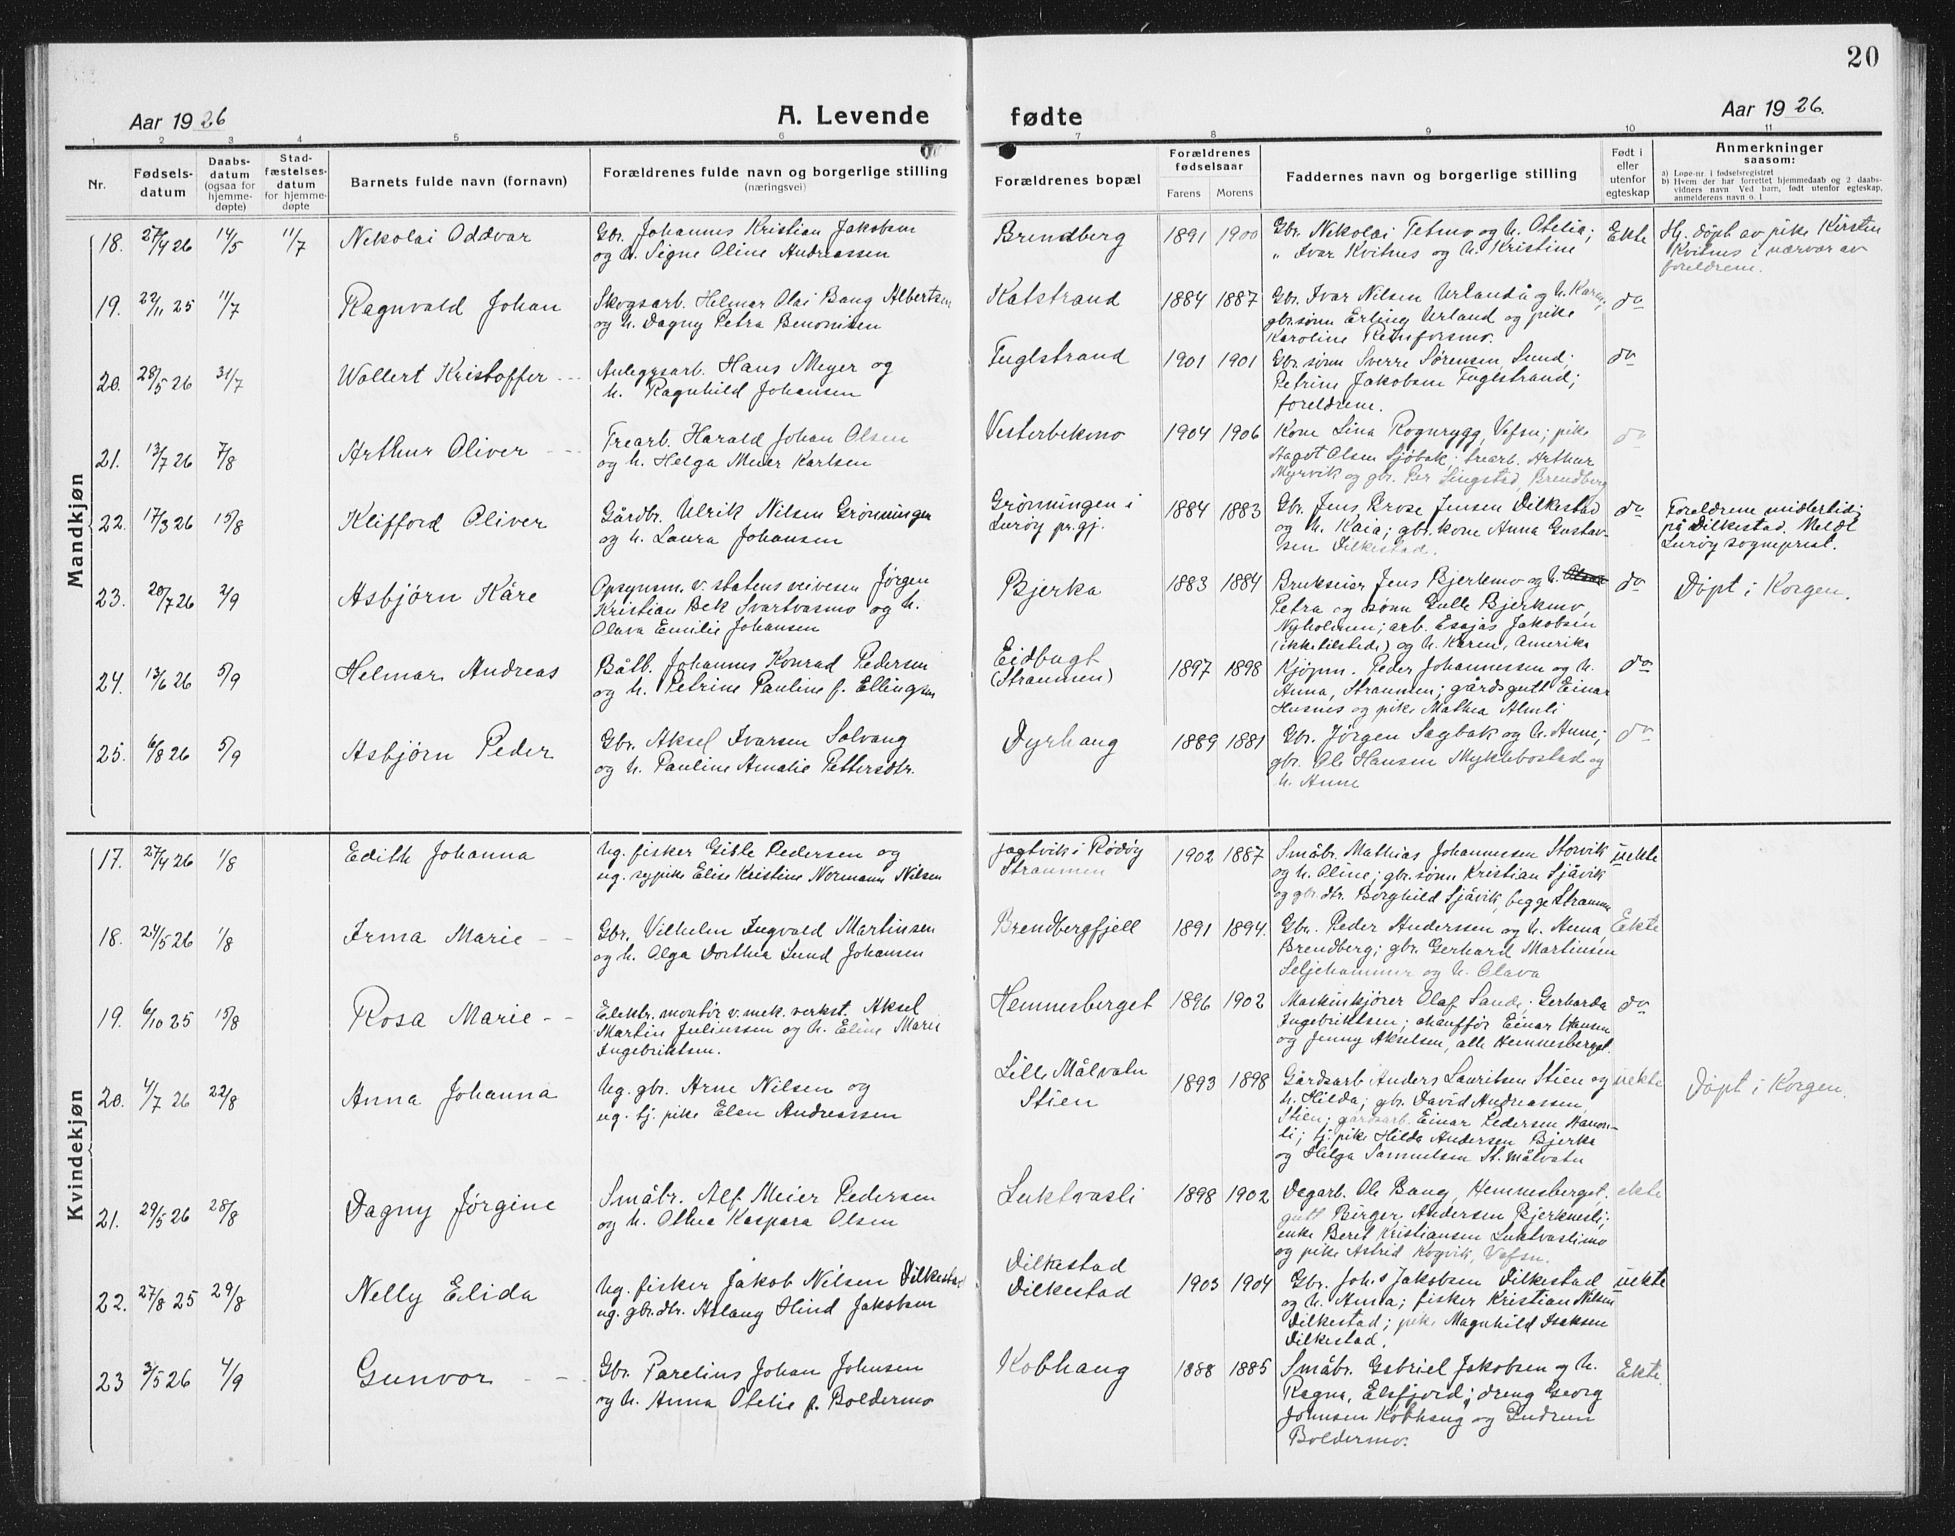 20
Aar 1926
A. Levende
fødte
Aar 1926.
1 2 3 4 5 6 7 8 9 10 11
Nr.
Fødsels-
datum
Daabs-
datum
(ogsaa for
hjemme-
døpte)
Stad-
fæstelses-
datum
for hjemme-
døpte
Barnets fulde navn (fornavn)
Forældrenes fulde navn og borgerlige stilling
(næringsvei)
Forældrenes bopæl
Forældrenes
fødselsaar
Farens Morens
Faddernes navn og borgerlige stilling
Født i
eller
utenfor
egteskap
Anmerkninger
saasom:
a) Løpe-nr. i fødselsregistret
b) Hvem der har forrettet hjemmedaab og 2 daabs-
vidners navn Ved barn, født utenfor egteskap,
anmelderens navn o. l
Mandkjøn
18. 27/4 26 14/5 11/7 Nikolai Oddvar
Gbr. Johannes Kristian Jakobsen
og h. Signe Oline Andreassen
Brendberg 1891 1900
Gbr. Nikolai Tetmo og h. Otelia;
" Ivar Kvitnes og h. Kristine
Ekte
Hj. døpt av pike Kirsten
Kvitnes i nærvær av
foreldrene.
19. 22/11 25 11/7 Ragnvald Johan
Skogsarb. Helmar Olai Bang Albertsen
og h. Dagny Petra Benonisen
Kalstrand 1884 1887
Gbr. Ivar Nilsen Urlandå og h. Karen,
gbr.sønn Erling Urland og pike
Karoline Reinforsmo.
do
20. 28/5 26 31/7 Wollert Kristoffer
Anleggsarb. Hans Meyer og
h. Ragnhild Johansen
Fuglstrand 1901 1901
Gbr.sønn Sverre Sørensen, Sund;
Petrine Jakobsen Fuglstrand;
foreldrene.
do
21. 13/7 26 7/8 Arthur Oliver
Trearb. Harald Johan Olsen
og h. Helga Meier Karlsen
Vesterbekmo 1904 1906
Kone Lina Rognrygg, Vefsn; pike
Aagot Olsen Sjøbak; trearb. Arthur
Myrvik og gbr. Per Lingstad, Brendberg
do
22. 17/3 26 15/8 Klifford Oliver
Gårdbr. Ulrik Nilsen Grønningen
og h. Laura Johansen
Grønningen i
Lurøy pr.gj.
1884 1883
Gbr. Jens Prose Jensen Dilkestad
og h. Kaia; gbr. kone Anna Gustav-
sen Dilkestad.
do
Foreldrene midlertidig
på Dilkestad. Meldt
Lurøy sogneprest.
23. 20/7 26 2/9 Asbjørn Kåre
Opsynsm. v. statens veivesen Jørgen
Kristian Bek Svartvasmo og h.
Olava Emilie Johansen
Bjerka 1883 1884
Brukseier Jens Bjerkmo og h.
Petra og sønn Gulle Bjerkmo,
Nyholmen; arb. Esajas Jakobsen
(ikke tilstede) og h. Karen, Amerika
do
Døpt i Korgen.
24. 13/6 26 5/9 Helmar Andreas
Båtb. Johannes Konrad Pedersen
og h. Petrine Pauline f. Ellingsen
Eidbugt
(Straumen)
1897 1898
Kjøpm. Peder Johannessen og h.
Anna, Straumen; gårdsgutt Einar
Husnes og pike Mathea Almli
do
25. 6/8 26 5/9 Asbjørn Peder
Gbr. Aksel Ivarsen Solvang
og h. Pauline Amalie Pettersdtr.
Dyrhaug 1889 1881
Gbr. Jørgen Sagbak og h. Anne;
gbr. Ole Hansen Myklebostad og
h. Anne
do
Kvindekjøn
17. 27/4 26 1/8 Edith Johanna
Ug. fisker Gisle Pedersen og
ug. sypike Elise Kristine Normann Nilsen
Jagtvik i Rødøy
Straumen
1902 1887
Småbr. Mathias Johannessen Storvik
og h. Aline; gbr.sønn Kristian Sjåvik
og gbr. dtr. Borghild Sjåvik, begge Straumen
uekte
18. 24/5 26 1/8 Irma Marie
Gbr. Vilhelm Ingvald Martinsen
og h. Olga Dorthea Lund Johansen
Brendbergfjell 1891 1894.
Gbr. Peder Anderssen og h. Anna,
Brendberg; gbr. Gerhard Martinsen
Seljehammer og h. Olava
Ekte
19. 6/10 25 15/8 Rosa Marie
Elektr. montør v. mek. verkst. Aksel
Martin Juliussen og h. Eline Marie
Ingebriktsen.
Hemnesberget 1896 1902
Maskinkjører Olaf Sande; Gerharda
Ingebriktsen; chauffør Einar Hansen
og Jenny Akselsen, alle Hemnesberget.
do
20. 4/7 26 22/8 Anna Johanna
Ug. gbr. Arne Nilsen og
ug. tj. pike Elen Andreassen
Lille Målvatn
Stien
1893 1898
Gårdsarb. Anders Lauritsen Stien og
h. Hilda; gbr. David Andreassen,
Stien; gårdsarb. Einar Pedersen
li; tj. pike Hilda Andersen Bjerka
og Helga Samuelsen St. Målvatn
uekte
Døpt i Korgen.
21. 29/5 26 28/8 Dagny Jørgine
Småbr. Alf Meier Pedersen
og h. Othea Kaspara Olsen
Luktvasli 1898 1902
Dagarb. Ole Bang, Hemnesberget.
gutt Birger Andersen Bjerknesli;
enke Beret Kristiansen Luktvaslimo
og pike Astrid Kogvik, Vefsn.
ekte
22. 27/8 25 29/8 Nelly Elida
Ug. fisker Jakob Nilsen Dilkestad
ug. gbr.dtr. Aslaug Hind Jakobsen
Dilkestad
Dilkestad
1903 1904
Gbr. Johs Jakobsen Dilkestad
og h. Anna; fisker Kristian Nilsen
Dilkestad; pike Magnhild Isaksen
Dilkestad.
uekte
23 3/5 26 4/9 Gunvor
Gbr. Parelius Johan Johnsen
og h. Anna Otelie f. Boldermo
Kobhaug 1888 1885
Småbr. Gabriel Jakobsen og h.
Ragna, Elsfjord; dreng Georg
Johnsen Kobhaug og Gudrun
Boldermo.
Ekte.